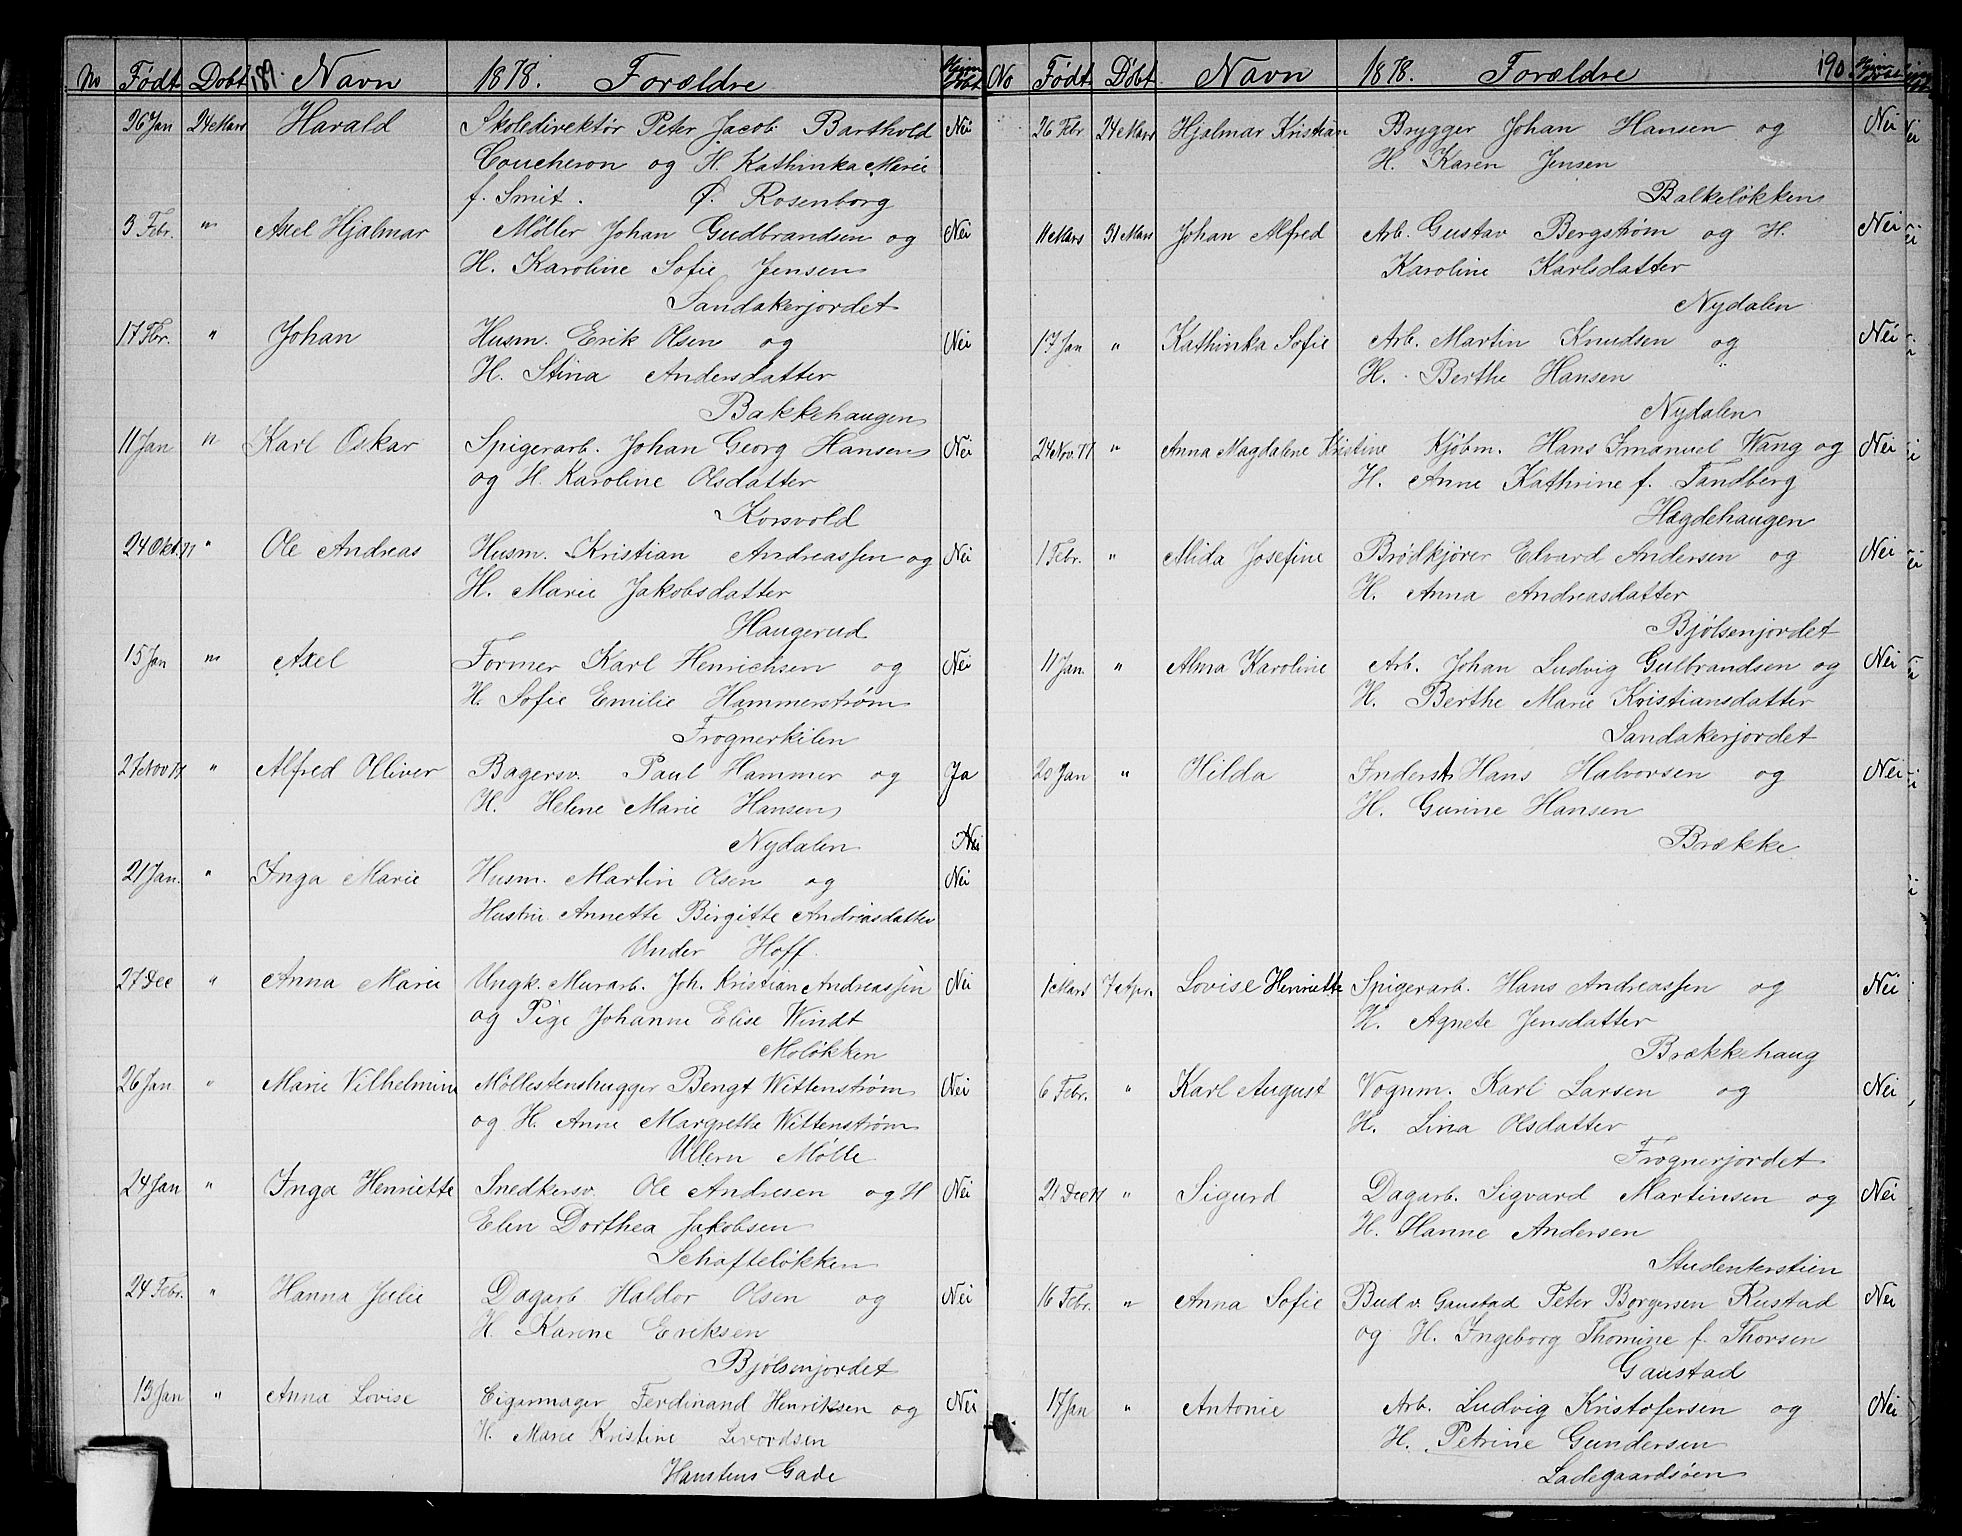 No Født Dobt 189. Navn 1878. Forældre Hjem Døbt
26 Jan 24 Mars Harald Skoledirektør Peter Jacob Barthold Nei
Coucheron og H. Kathinka Marie
f. Smit. Ø. Rosenborg
3 Febr. " Axel Hjalmar Møller Johan Gudbrandsen og Nei
H. Karoline Sofie Jensen
Sandakerjordet
17 Fbr. " Johan Husm. Erik Olsen og Nei
H. Stina Andersdatter
Bakkehaugen
11 Jan " Karl Oskar Spigerarb. Johan Georg Hansen Nei
og H. Karoline Olsdatter
Korsvold
24 Okt. 77 " Ole Andreas Husm. Kristian Andreassen og Nei
H. Marie Jakobsdatter
Haugerud
15 Jan " Axel Former Karl Henrichsen og Nei
H. Sofie Emilie Hammerstrøm
Frognerkilen
27 Nov 77 " Alfred Olliver Bagersv. Paul Hammer og Ja
H. Helene Marie Hansen
Nydalen Nei
21 Jan. " Inga Marie Husm. Martin Olsen og Nei
Hustru Annette Birgitte Andriasdatter
Under Hoff.
27 Dec " Anna Marie Ungk. Murarb. Joh. Kristian Andreassen Nei
og Pige Johanne Elise Windt
Moløkken
26 Jan " Marie Vilhelmine Møllestenshugger Bengt Wittenstrøm Nei
og H. Anne Margrethe Wittenstrøm
Ullern Mølle
24 Jan " Inga Henriette Snedkersv. Ole Andresen og H Nei
Elen Dorthea Jakobsen
Schafteløkken
24 Febr. " Hanna Julie Dagarb Haldor Olsen og Nei
H. Karine Eriksen
Bjølsenjordet
13 Jan " Anna Lovise Cigarmager Ferdinand Henriksen og Nei
H. Marie Kristine Sivordsen
Hanstens Gade
No Født Døbt Navn 1878. Forældre 190 Hjem Døbt
26 Febr 24 Mars Hjalmar Kristian Brygger Johan Hansen og Nei
H. Karen Jensen
Balkeløkken
11 Mars 31 Mars Johan Alfred Arb. Gustav Bergstrøm og H. Nei
Karoline Karlsdatter
Nydalen
17 Jan " Kathinka Sofie Arb. Martin Knudsen og Nei
H. Berthe Hansen
Nydalen
24 Nov. 77 " Anna Magdalene Kristine Kjøbm. Hans Imanuel Wang og Nei
H. Anne Kathrine f. Tandberg
Hægdehaugen
1 Febr. " Alida Josefine Brødkjører Edvard Andersen og Nei
H. Anna Andreasdatter
Bjølsenjordet
11 Jan. " Alma Karoline Arb. Johan Ludvig Gulbrandsen og Nei
H. Berthe Marie Kristiansdatter
Sandakerjordet
20 Jan " Hilda Inderst Hans Halvorsen og Nei
H. Gurine Hansen
Brække
1 Mars 7 Apr. Lovise Henriette Spigerarb. Hans Andreassen og Nei
H. Agnete Jensdatter
Brækkehaug
6 Febr. " Karl August Vognm. Karl Larsen og Nei
H. Lina Olsdatter
Frognerjordet
21 Dec 77 " Sigurd Dagarb. Sigvard Martinsen og Nei
H. Hanne Andersen
Studenterstien
16 Febr. " Anna Sofie Bud v. Gaustad Peter Borgersen Rustad Nei
og H. Ingeborg Thomine f. Thorsen
Gaustad
17 Jan " Antonie Arb. Ludvig Kristofersen og Nei
H. Petrine Gundersen
Ladegaardsøen